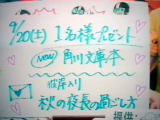 9/20(土) 1名様プレゼント
New 角川文庫本
彼岸入り
秋の夜長の過ごし方
提供: